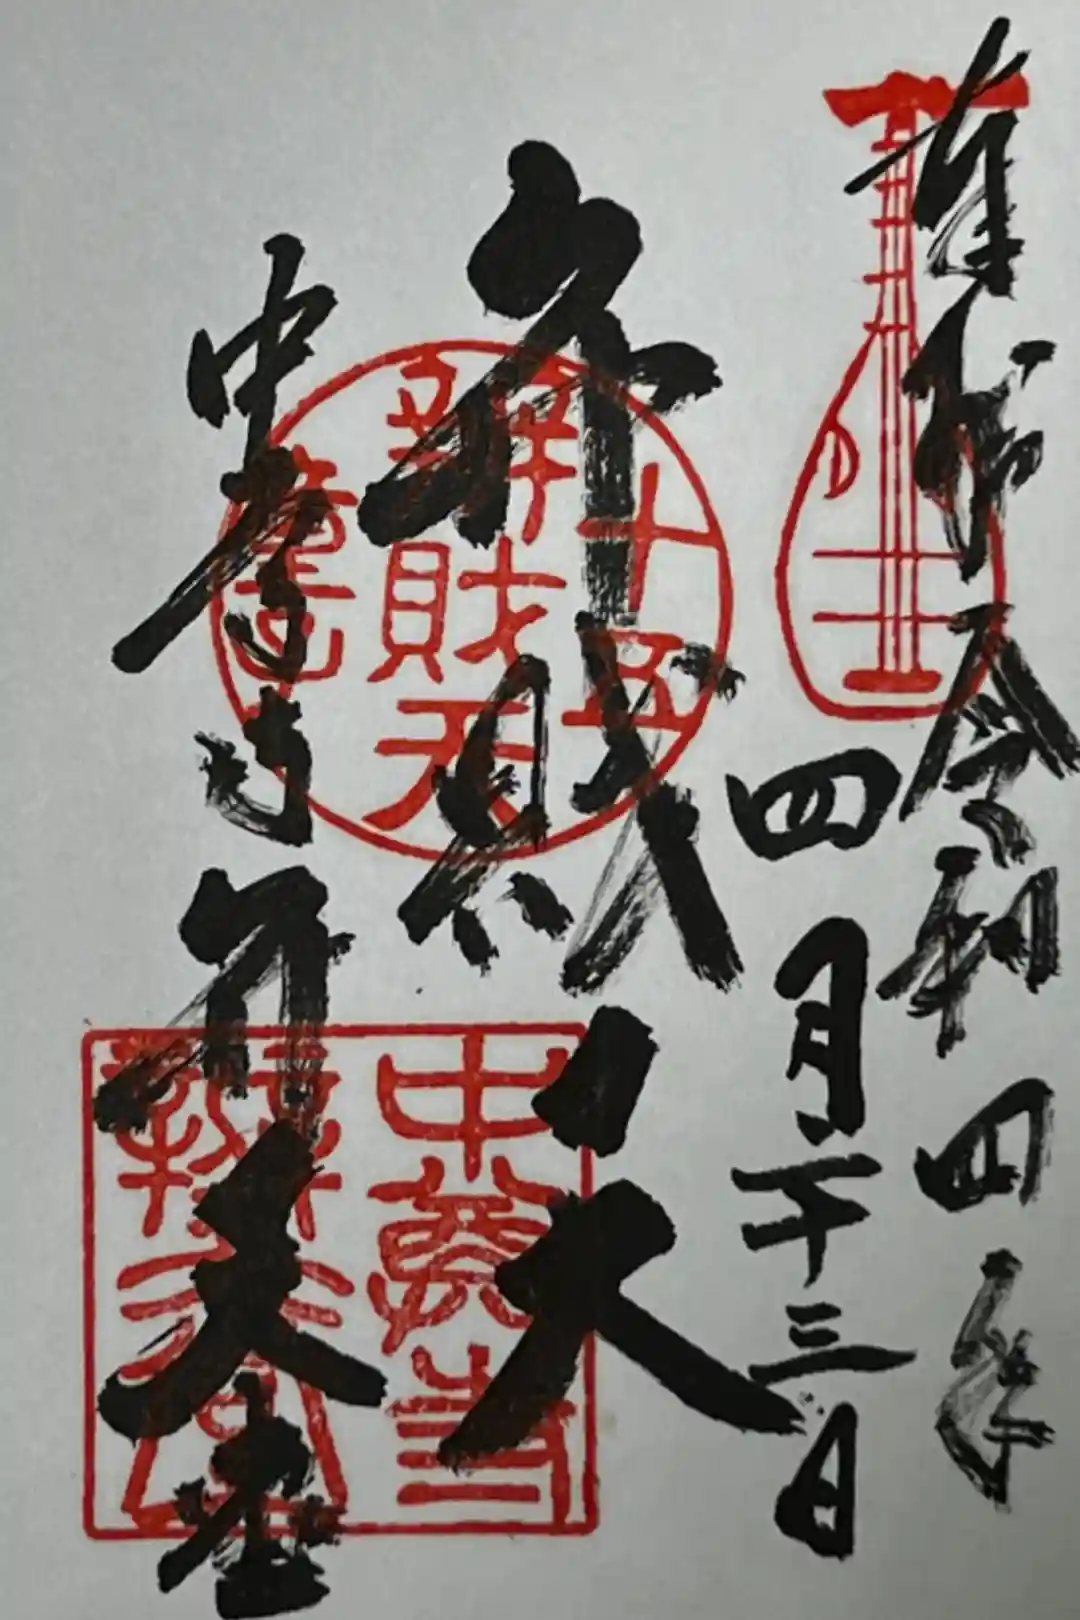 令和四年
四月十三日
弁財天
中尊寺弁天堂
十五
辨財天
童子
中尊寺
辨天堂